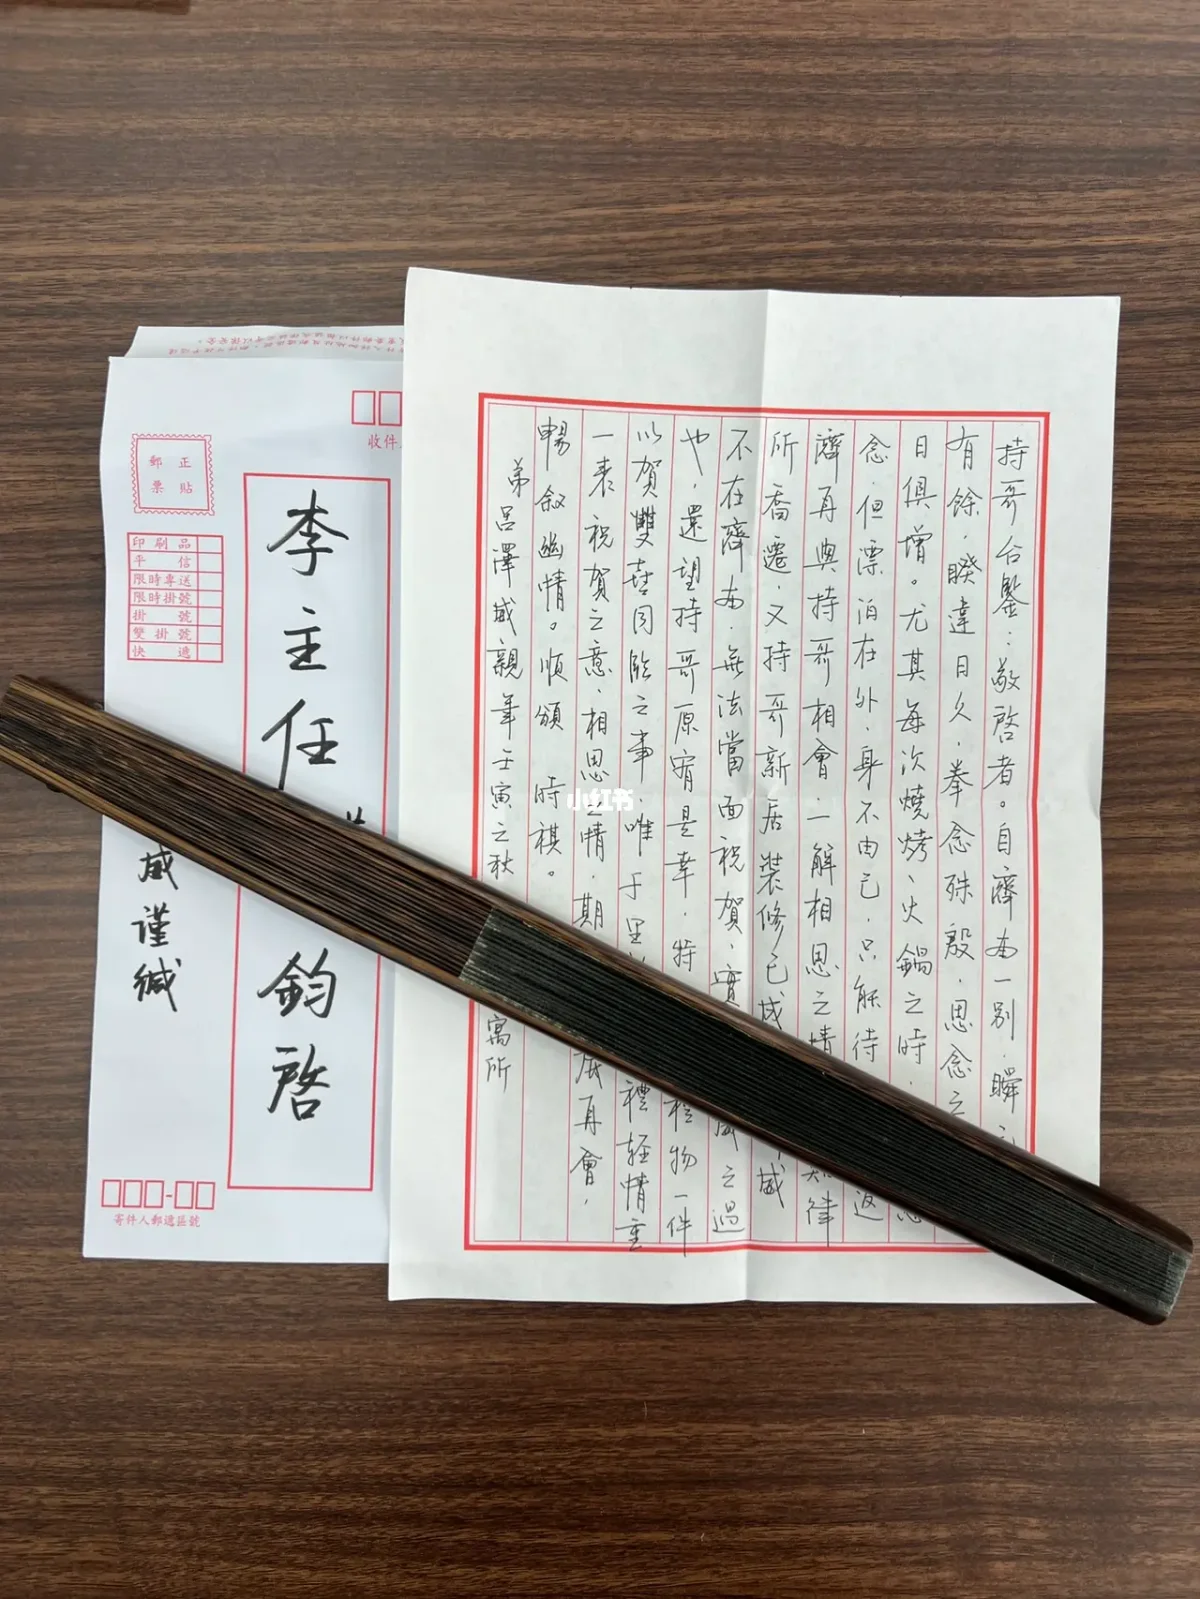 持哥台鑒：敬啓者。自濟南一別，瞬
有餘，睽違日久，拳念殊殷，思念之
日俱增。尤其每次燒烤、火鍋之時，
念，但漂泊在外，身不由己，只能待返
濟再與持哥相會，一解相思之情
所喬遷，又持哥新居裝修已成 威
不在濟南，無法當面祝賀，實 威之過
也，還望持哥原宥是幸，特 禮物一件
以賀雙喜同臨之事，唯于里 禮輕情重
一表祝賀之意，相思之情，期 再會，
暢敘幽情。順頌 時祺。
弟呂澤威親筆壬寅之秋 寓所
李主任 鈞啓
威謹緘
收件人
正貼
郵票
印刷品
平信
限時專送
限時掛號
掛號
雙掛號
快遞
寄件人郵遞區號
小红书